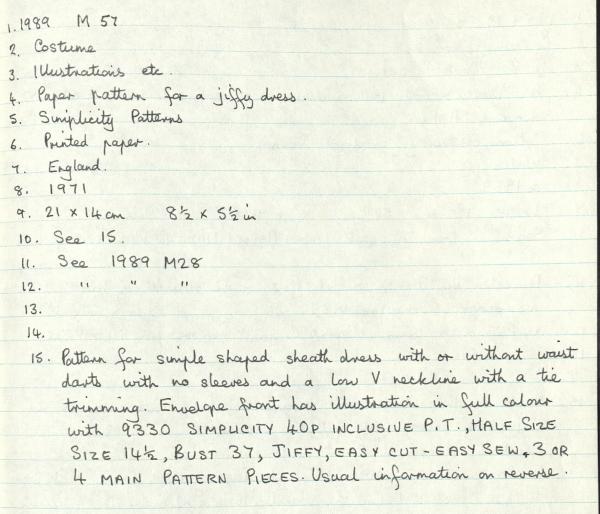 1. 1989 M 57
2. Costume
3. Illustrations etc.
4. Paper pattern for a jiffy dress.
5. Simplicity Patterns
6. Printed paper.
7. England.
8. 1971
9. 21 x 14 cm 8½ x 5½ in
10. See 15.
11. See 1989 M28
12. " " "
13.
14.
15. Pattern for simple shaped sheath dress with or without waist
darts with no sleeves and a low V neckline with a tie
trimming. Envelope front has illustration in full colour
with 9330 SIMPLICITY 40P INCLUSIVE P.T., HALF SIZE
SIZE 14½, BUST 37, JIFFY, EASY CUT - EASY SEW, 3 OR
4 MAIN PATTERN PIECES. Usual information on reverse.